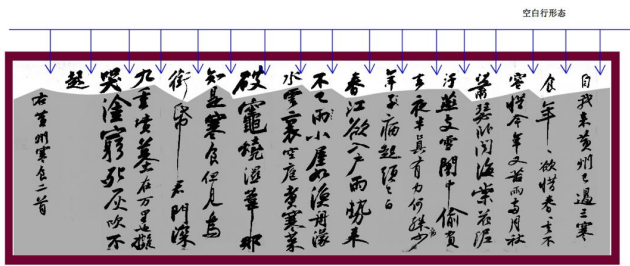 空白行形态
自我来黄州已過三寒
食年〻欲惜春去不
容惜今年又苦雨兩月秋
蕭瑟卧聞海棠花泥
汙燕支雪闇中偷負
去夜半真有力何殊少
年子病起頭已白
春江欲入户雨勢来
不已雨小屋如漁舟濛
水雲裏空庖煮寒菜
破竈燒溼葦那
知是寒食但見烏
銜帋君門深
九重墳墓在万里也擬
哭塗窮死灰吹不
起
右黄州寒食二首